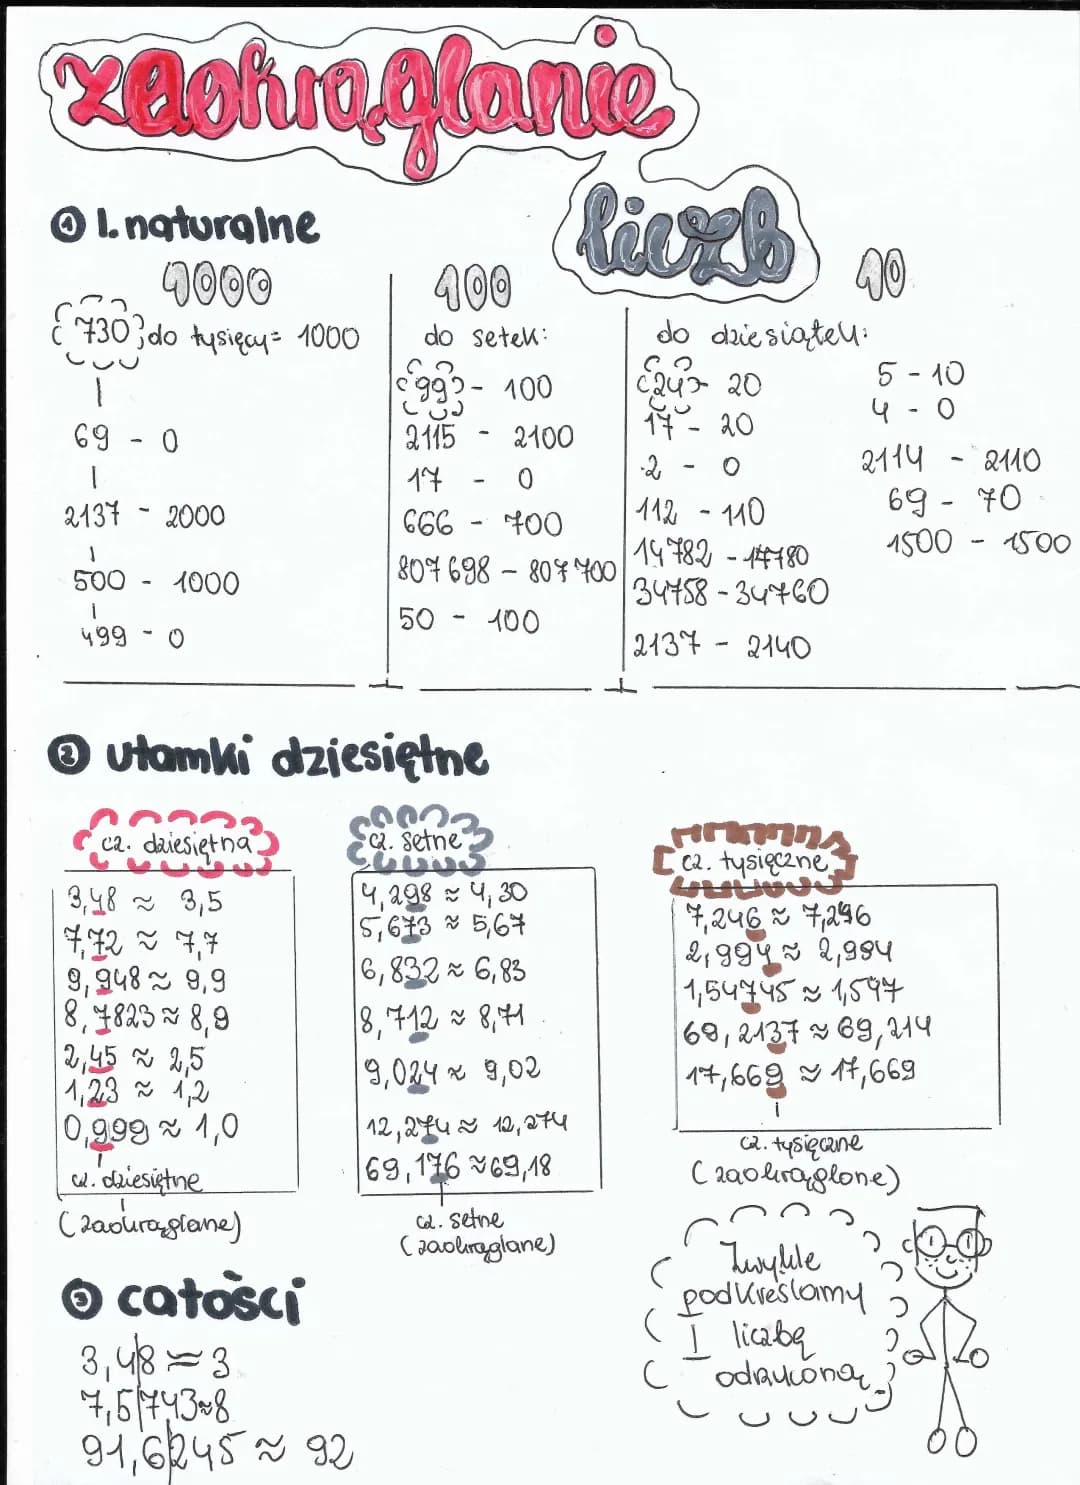 zaokrąglanie
liczb
① l. naturalne
1000
730 do tysięcy = 1000
69 - 0
2137 - 2000
500 - 1000
499 - 0
100
do setek:
99 - 100
2115 - 2100
17 - 0
666 - 700
807698 - 807700
50 - 100
10
do dziesiątek:
24 - 20
17 - 20
2 - 0
112 - 110
14782 - 14780
34758 - 34760
2137 - 2140
5 - 10
4 - 0
2114 - 2110
69 - 70
1500 - 1500
② ułamki dziesiętne
cz. dziesiętna
3,48 ≈ 3,5
7,72 ≈ 7,7
9,948 ≈ 9,9
8,7823 ≈ 8,9
2,45 ≈ 2,5
1,23 ≈ 1,2
0,999 ≈ 1,0
cz. dziesiętne
(zaokrąglane)
cz. setne
4,298 ≈ 4,30
5,673 ≈ 5,67
6,832 ≈ 6,83
8,712 ≈ 8,71
9,024 ≈ 9,02
12,274 ≈ 12,274
69,176 ≈ 69,18
cz. setne
(zaokrąglane)
cz. tysięczne
7,246 ≈ 7,246
2,994 ≈ 2,994
1,54745 ≈ 1,547
69,2137 ≈ 69,214
17,669 ≈ 17,669
cz. tysięczne
(zaokrąglone)
③ całości
3,48 ≈ 3
7,5743 ≈ 8
91,6245 ≈ 92
Zwykle
podkreślamy
I liczbę
odrzuconą